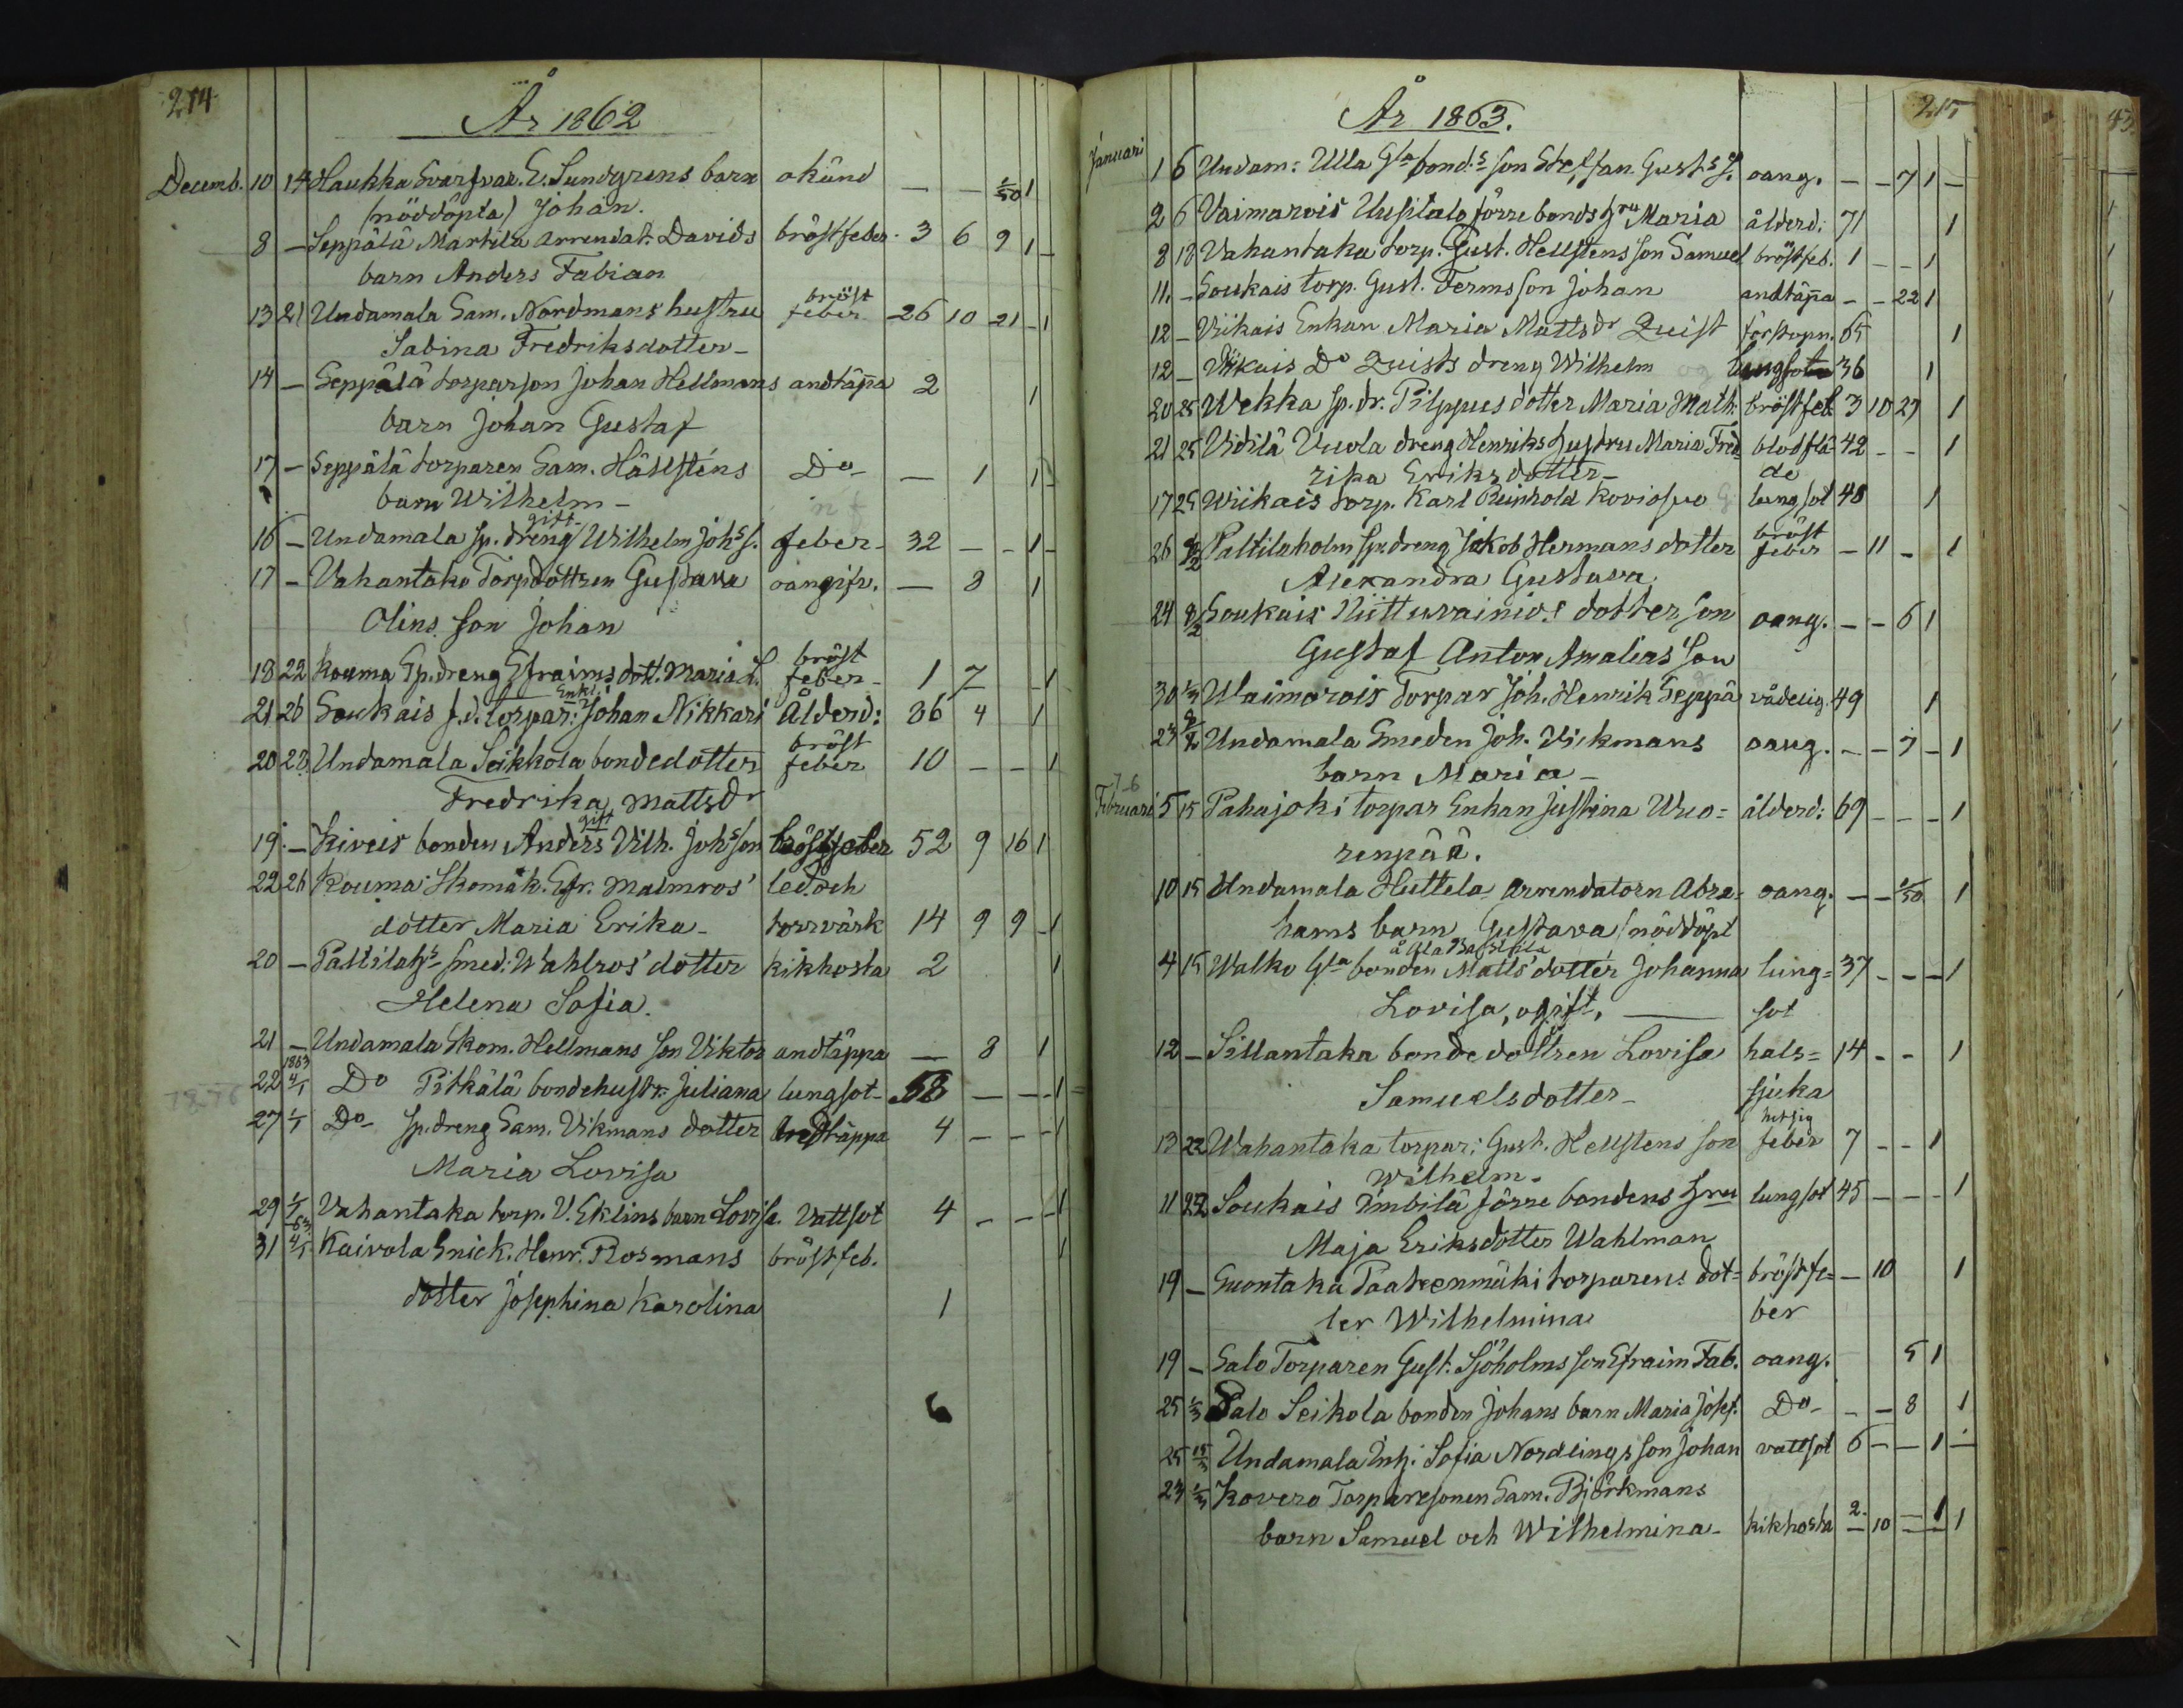 214
År 1862
Decemb. 10 14 Haukka Svarfvar. E. Sundgrens barn okänd — — 1/50 1
(nöddöpta) Johan.
8 — Seppälä Martila arrendat. Davids bröstfeber 3 6 9 1 —
barn Anders Fabian
13 21 Undamala Sam. Nordmans hustru bröst feber 26 10 21 — 1
Sabina Fredriksdotter —
14 — Seppälä torparson Johan Hellmans andtäppa 2 1
barn Johan Gustaf
17 — Seppälä torparen Sam. Hällsténs Do — 1 1 —
barn Wilhelm —
16 — Undamala sp. dreng gift Wilhelm Johs s. feber 32 — — 1 —
17 — Vahantaka Torpdottren Gustava oangifv. — 8 1
Olins son Johan
18 22 Kouma Sp. dreng Efraims dott. Maria L. bröst feber 1 7 — 1
21 26 Soukais f.d. torpar: Enkl. Johan Nikkari Ålderd: 86 4 1
20 28 Undamala Seikkola bondedotter bröst feber 10 — — 1
Fredrika Mattsdr
19 — Kiveis bonden Anders gift Vilh. Johsson bröstfeber 52 9 16 1
22 26 Kouma Skomak. Efr. Malmros' led och
dotter Maria Erika — torrvärk 14 9 9 — 1
20 — Paltilahs smed: Wahlros' dotter kikhosta 2 1
Helena Sofia.
21 — Undamala Skom. Hellmans son Viktor andtäppa — 8 1
1863
22 4/1 Do Pitkälä bondehustr. Juliana lungsot — 58 — — 1
27 1/1 Do — sp. dreng Sam. Vikmans dotter andtäppa 4 — — 1
Maria Lovisa
29 1/1 Vahantaka torp. V. Eklins barn Lovisa. Vattsot 4 — — 1
63
31 4/1 Kaivola Snick. Henr. Rosmans bröstfeb. 1
dotter Josephina Karolina 1
6
215
År 1863.
Januari 1 6 Undam: Ulla Gla bond:s son Steffan Gusts s. oang. — — 7 1 —
2 6 Vaimarois Uusitalo förre bonds hru Maria ålderd: 71 1
8 18 Vahantaka torp. Gust. Hellstens son Samuel bröstfeb. 1 — — 1
11 — Soukais torp. Gust. Ferms son Johan andtäppa — — 22 1
12 — Viikais Enkan Maria Mattsdr Quist förstopn. 65 1
12 — Viikais Do Quists dreng Wilhelm lungsot 36 1
20 25 Wekka sp. dr. Pilppus dotter Maria Math. bröstfeb 3 10 27 1
21 25 Vidilä Vuola dreng Henriks hustru Maria Fred- blodflö- 42 — — 1
rika Eriksdotter — de
17 25 Wiikais torp. Karl Reinhold Koviosuo lungsot 48 1
26 8/2 Paltilaholm Sp. dreng Jakob Hermans dotter bröst feber — 11 — 1
Alexandra Gustava
24 8/2 Soukais Niittuvainios dotter son oang. — — 6 1
Gustaf Anton Amalias son
30 1/3 Waimarois Torpar Joh. Henrik Seppä vådelig. 49 1
23 8/2 Undamala Smeden Joh. Vickmans oang. — — 7 — 1
barn Maria —
7-6
Februari 5 15 Pahajoki torpar Enkan Justina Wuo- ålderd: 69 — — — 1
renpää.
10 15 Undamala Huttela arrendatorn Abra- oang. — — 1/50 1
hams barn Gustava (nöddöpt
4 15 Walko Gla bonden Matts' dotter Johanna lung- 37 — — — 1
Lovisa, ogift, — sot
12 — Sillantaka bondedottren Lovisa hals- 14 — — 1
Samuelsdotter — sjuka
13 22 Wahantaka torpar: Gust. Hellstens son hetsig feber 7 — — 1
Wilhelm.
11 22 Soukais Imbilä förre bondens hru lungsot 45 — — — 1
Maja Eriksdotter Wahlman
19 — Suontaka Paateenmäki torparens dot- bröstfe- — 10 1
ter Wilhelmina ber
19 — Salo Torparen Gust. Sjöholms son Efraim Fab. oang. 5 1
25 1/3 Salo Seikola bonden Johans barn Maria Josef. Do — — — 8 1
25 15/3 Undamala Inh: Sofia Nordlings son Johan vattsot 6 — — 1 —
23 1/3 Kovero Torparesonen Sam. Björkmans
barn Samuel och Wilhelmina — kikhosta 2. — 10 — — 1 1